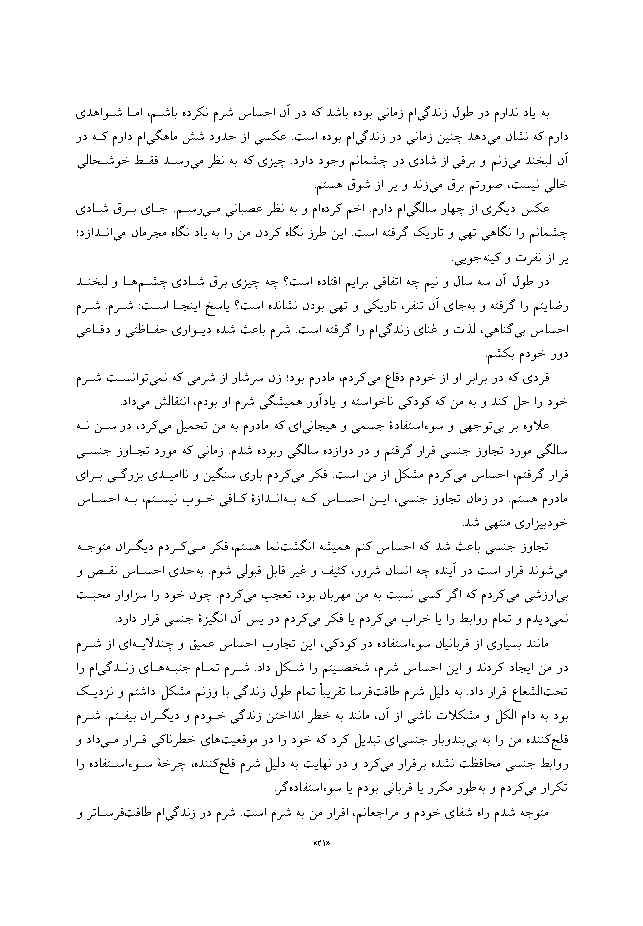 به یاد ندارم در طول زندگی‌ام زمانی بوده باشد که در آن احساس شرم نکرده باشم، اما شواهدی
دارم که نشان می‌دهد چنین زمانی در زندگی‌ام بوده است. عکسی از حدود شش ماهگی‌ام دارم که در
آن لبخند می‌زنم و برقی از شادی در چشمانم وجود دارد. چیزی که به نظر می‌رسد فقط خوشحالی
خالی نیست، صورتم برق می‌زند و پر از شوق هستم.
عکس دیگری از چهار سالگی‌ام دارم. اخم کرده‌ام و به نظر عصبانی می‌رسم. جای برق شادی
چشمانم را نگاهی تهی و تاریک گرفته است. این طرز نگاه کردن من را به یاد نگاه مجرمان می‌اندازد؛
پر از نفرت و کینه‌جویی.
در طول آن سه سال و نیم چه اتفاقی برایم افتاده است؟ چه چیزی برق شادی چشم‌ها و لبخند
رضایتم را گرفته و به‌جای آن نفرت، تاریکی و تهی بودن نشانده است؟ پاسخ اینجا است: شرم. شرم
احساس بی‌گناهی، لذت و غنای زندگی‌ام را گرفته است. شرم باعث شده دیواری حفاظتی و دفاعی
دور خودم بکشم.
فردی که در برابر او از خودم دفاع می‌کردم، مادرم بود؛ زن سرشار از شرمی که نمی‌توانست شرم
خود را حل کند و به من که کودکی ناخواسته و یادآور همیشگی شرم او بودم، انتقالش می‌داد.
علاوه بر بی‌توجهی و سوءاستفادهٔ جسمی و هیجانی‌ای که مادرم به من تحمیل می‌کرد، در سن نه
سالگی مورد تجاوز جنسی قرار گرفتم و در دوازده سالگی روبوده شدم. زمانی که مورد تجاوز جنسی
قرار گرفتم، احساس می‌کردم مشکل از من است. فکر می‌کردم باری سنگین و ناامیدی بزرگی برای
مادرم هستم. در زمان تجاوز جنسی، این احساس که به‌اندازهٔ کافی خوب نیستم، به احساس
خودبیزاری منتهی شد.
تجاوز جنسی باعث شد که احساس کنم همیشه انگشت‌نما هستم، فکر می‌کردم دیگران متوجه
می‌شوند در است قرار آینده چه انسان شرور، کثیف و غیر قابل قبولی شوم. به‌حدی احساس نقص و
بی‌ارزشی می‌کردم که اگر کسی نسبت به من مهربان بود، تعجب می‌کردم. چون خود را سزاوار محبت
نمی‌دیدم و تمام روابط را یا خراب می‌کردم یا فکر می‌کردم در پس آن انگیزهٔ جنسی قرار دارد.
مانند بسیاری از قربانیان سوءاستفاده در کودکی، این تجارب احساس عمیق و چندلایه‌ای از شرم
در من ایجاد کردند و این احساس شرم، شخصیتم را شکل داد. شرم تمام جنبه‌های زندگی‌ام را
تحت‌الشعاع قرار داد. به دلیل شرم طاقت‌فرسا تقریباً تمام طول زندگی با وزنم مشکل داشتم و نزدیک
بود به دام الکل و مشکلات ناشی از آن، مانند به خطر انداختن زندگی خودم و دیگران بیفتم. شرم
فلج‌کننده من را به بی‌بندوباری جنسی‌ای تبدیل کرد که خود را در موقعیت‌های خطرناکی قرار می‌داد و
روابط جنسی محافظت نشده برقرار می‌کرد و در نهایت به دلیل شرم فلج‌کننده، چرخهٔ سوءاستفاده را
تکرار می‌کردم و به‌طور مکرر یا قربانی بودم یا سوءاستفاده‌گر.
متوجه شدم راه شفای خودم و مراجعانم، اقرار به شرم است. شرم در زندگی‌ام طاقت‌فرساتر و
«۲۱»